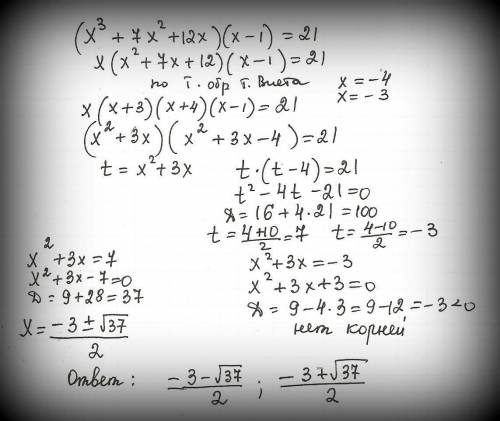 (x³ + 7x² + 12x)(x - 1) = 21
x(x² + 7x + 12)(x - 1) = 21
по т. обр т. Виета
x = -4
x = -3
x(x + 3)(x + 4)(x - 1) = 21
(x² + 3x)(x² + 3x - 4) = 21
t = x² + 3x
t·(t - 4) = 21
t² - 4t - 21 = 0
D = 16 + 4·21 = 100
t = (4+10)/2 = 7 t = (4-10)/2 = -3
x² + 3x = 7
x² + 3x - 7 = 0
D = 9 + 28 = 37
x = (-3 ± √37)/2
x² + 3x = -3
x² + 3x + 3 = 0
D = 9 - 4·3 = 9 - 12 = -3 < 0
нет корней
Ответ: (-3 - √37)/2 ; (-3 + √37)/2